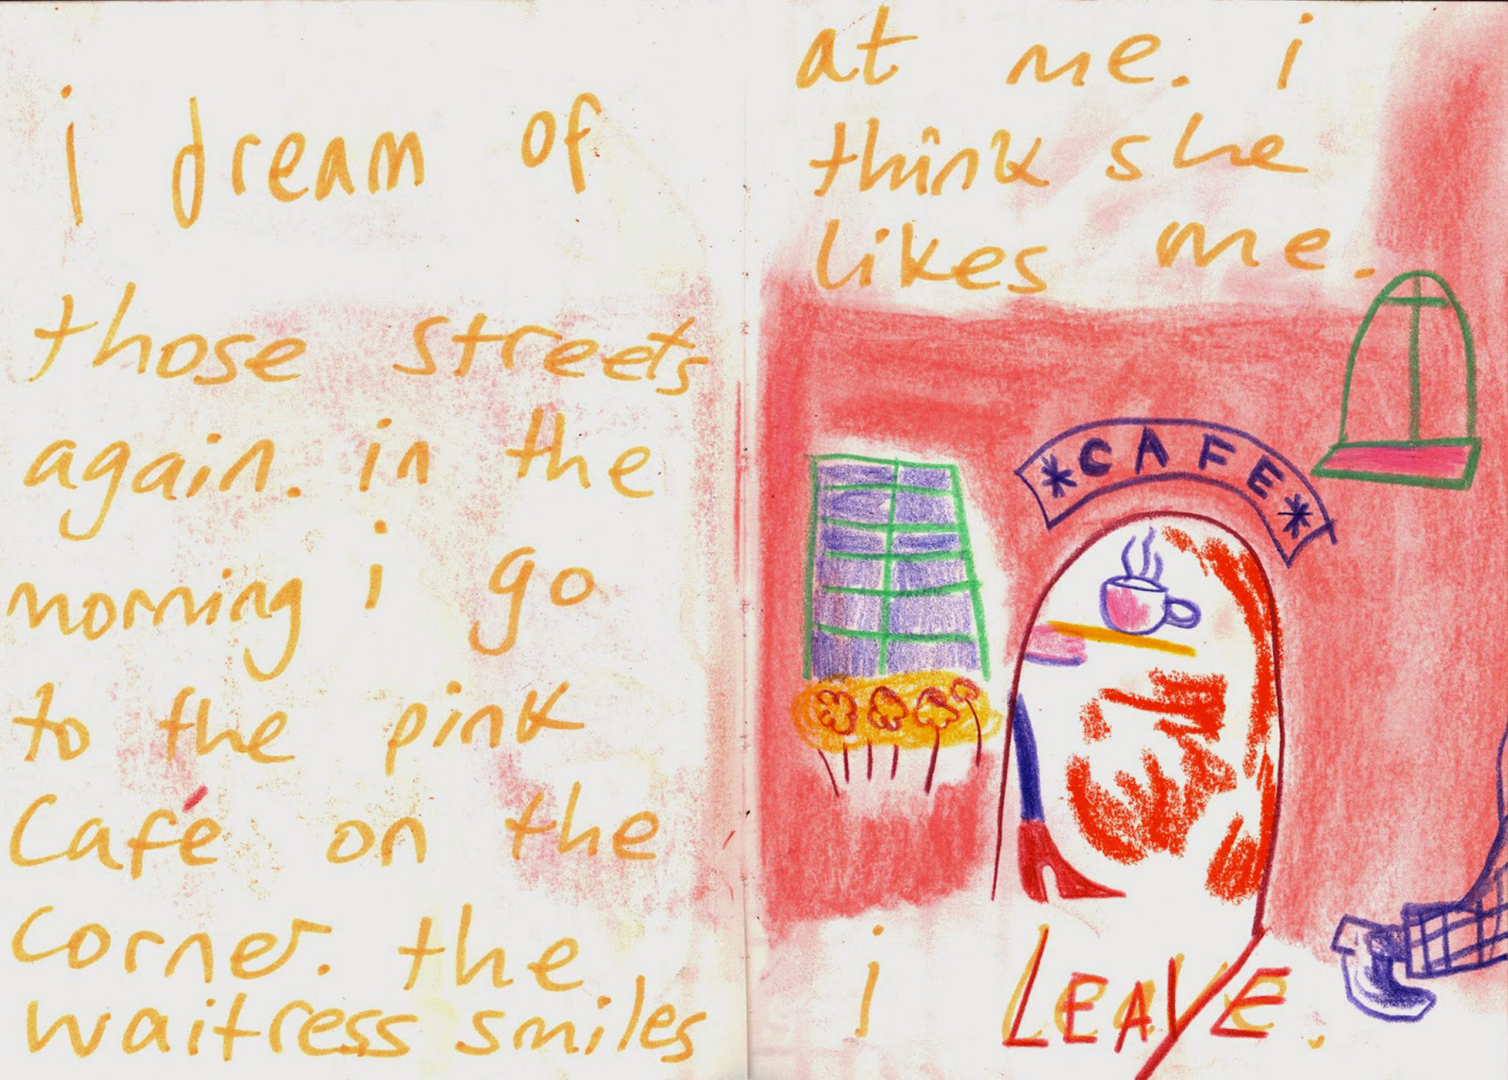 i dream of
those streets
again. in the
morning i go
to the pink
Café on the
corner. the
waitress smiles
at me. i
think she
likes me.
*CAFE*
i LEAVE.